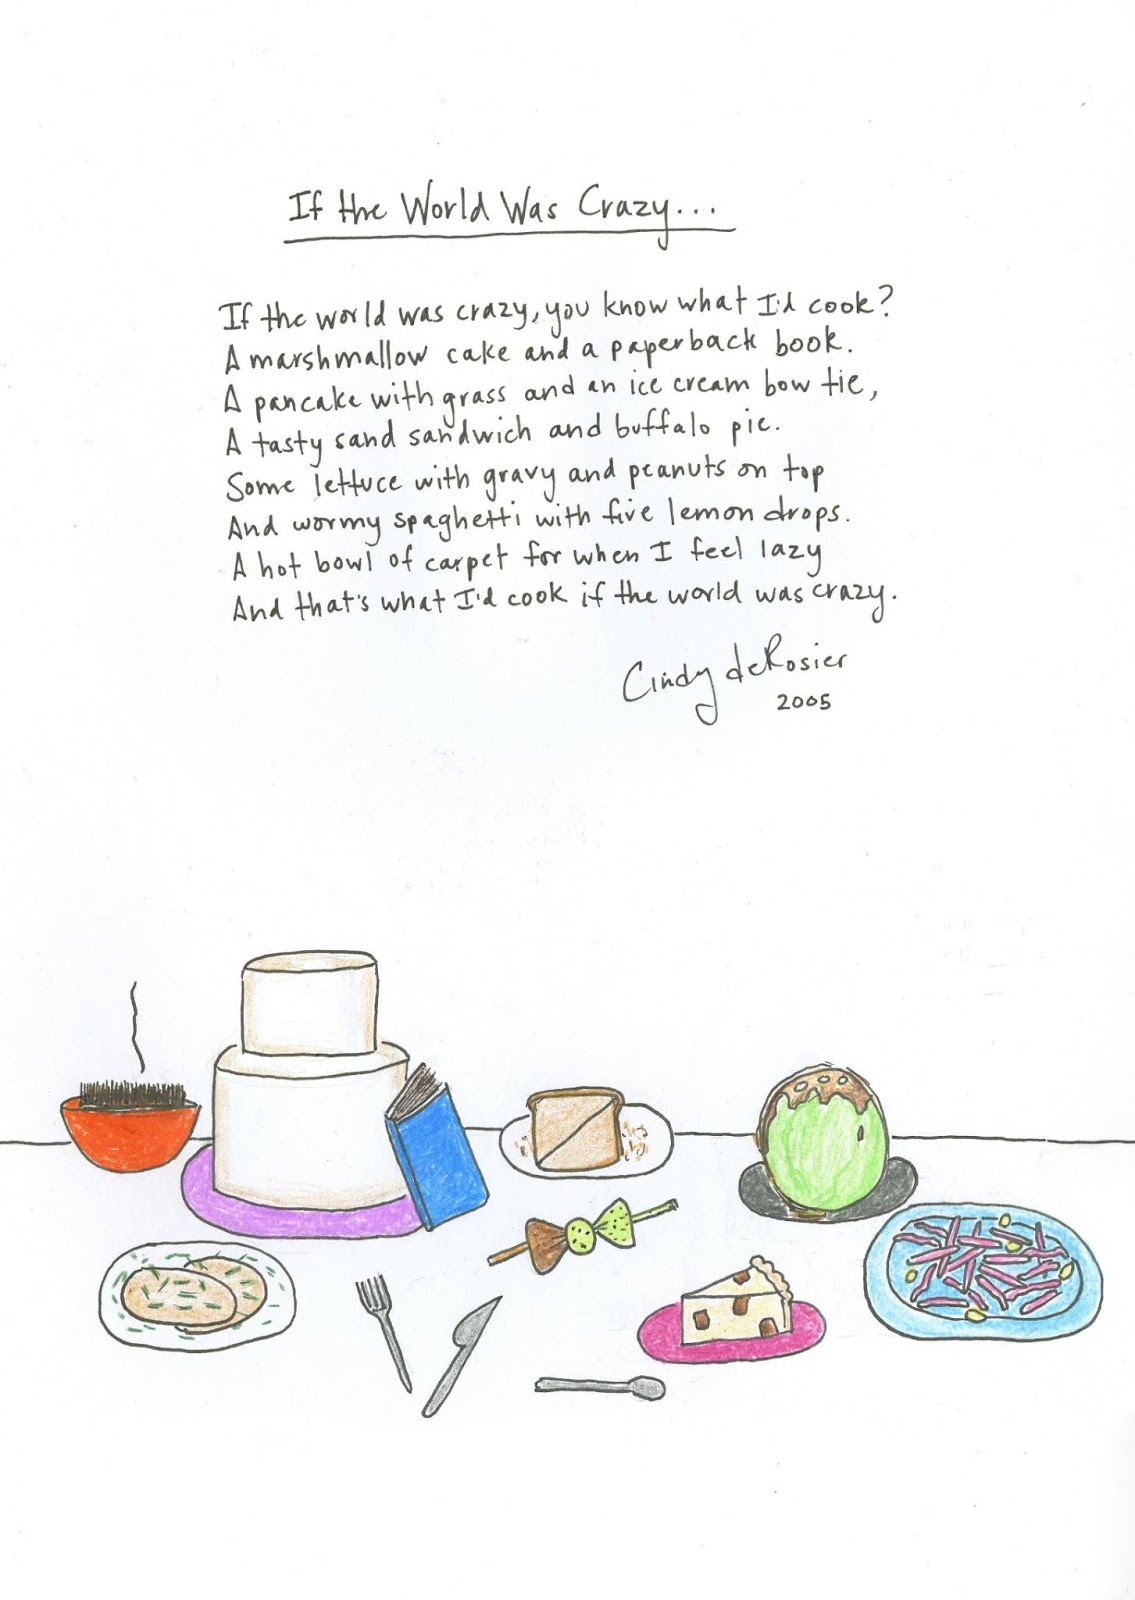 If the World Was Crazy...
If the world was crazy, you know what I'd cook?
A marshmallow cake and a paperback book.
A pancake with grass and an ice cream bow tie,
A tasty sand sandwich and buffalo pie.
Some lettuce with gravy and peanuts on top
And wormy spaghetti with five lemon drops.
A hot bowl of carpet for when I feel lazy
And that's what I'd cook if the world was crazy.
Cindy deRosier
2005